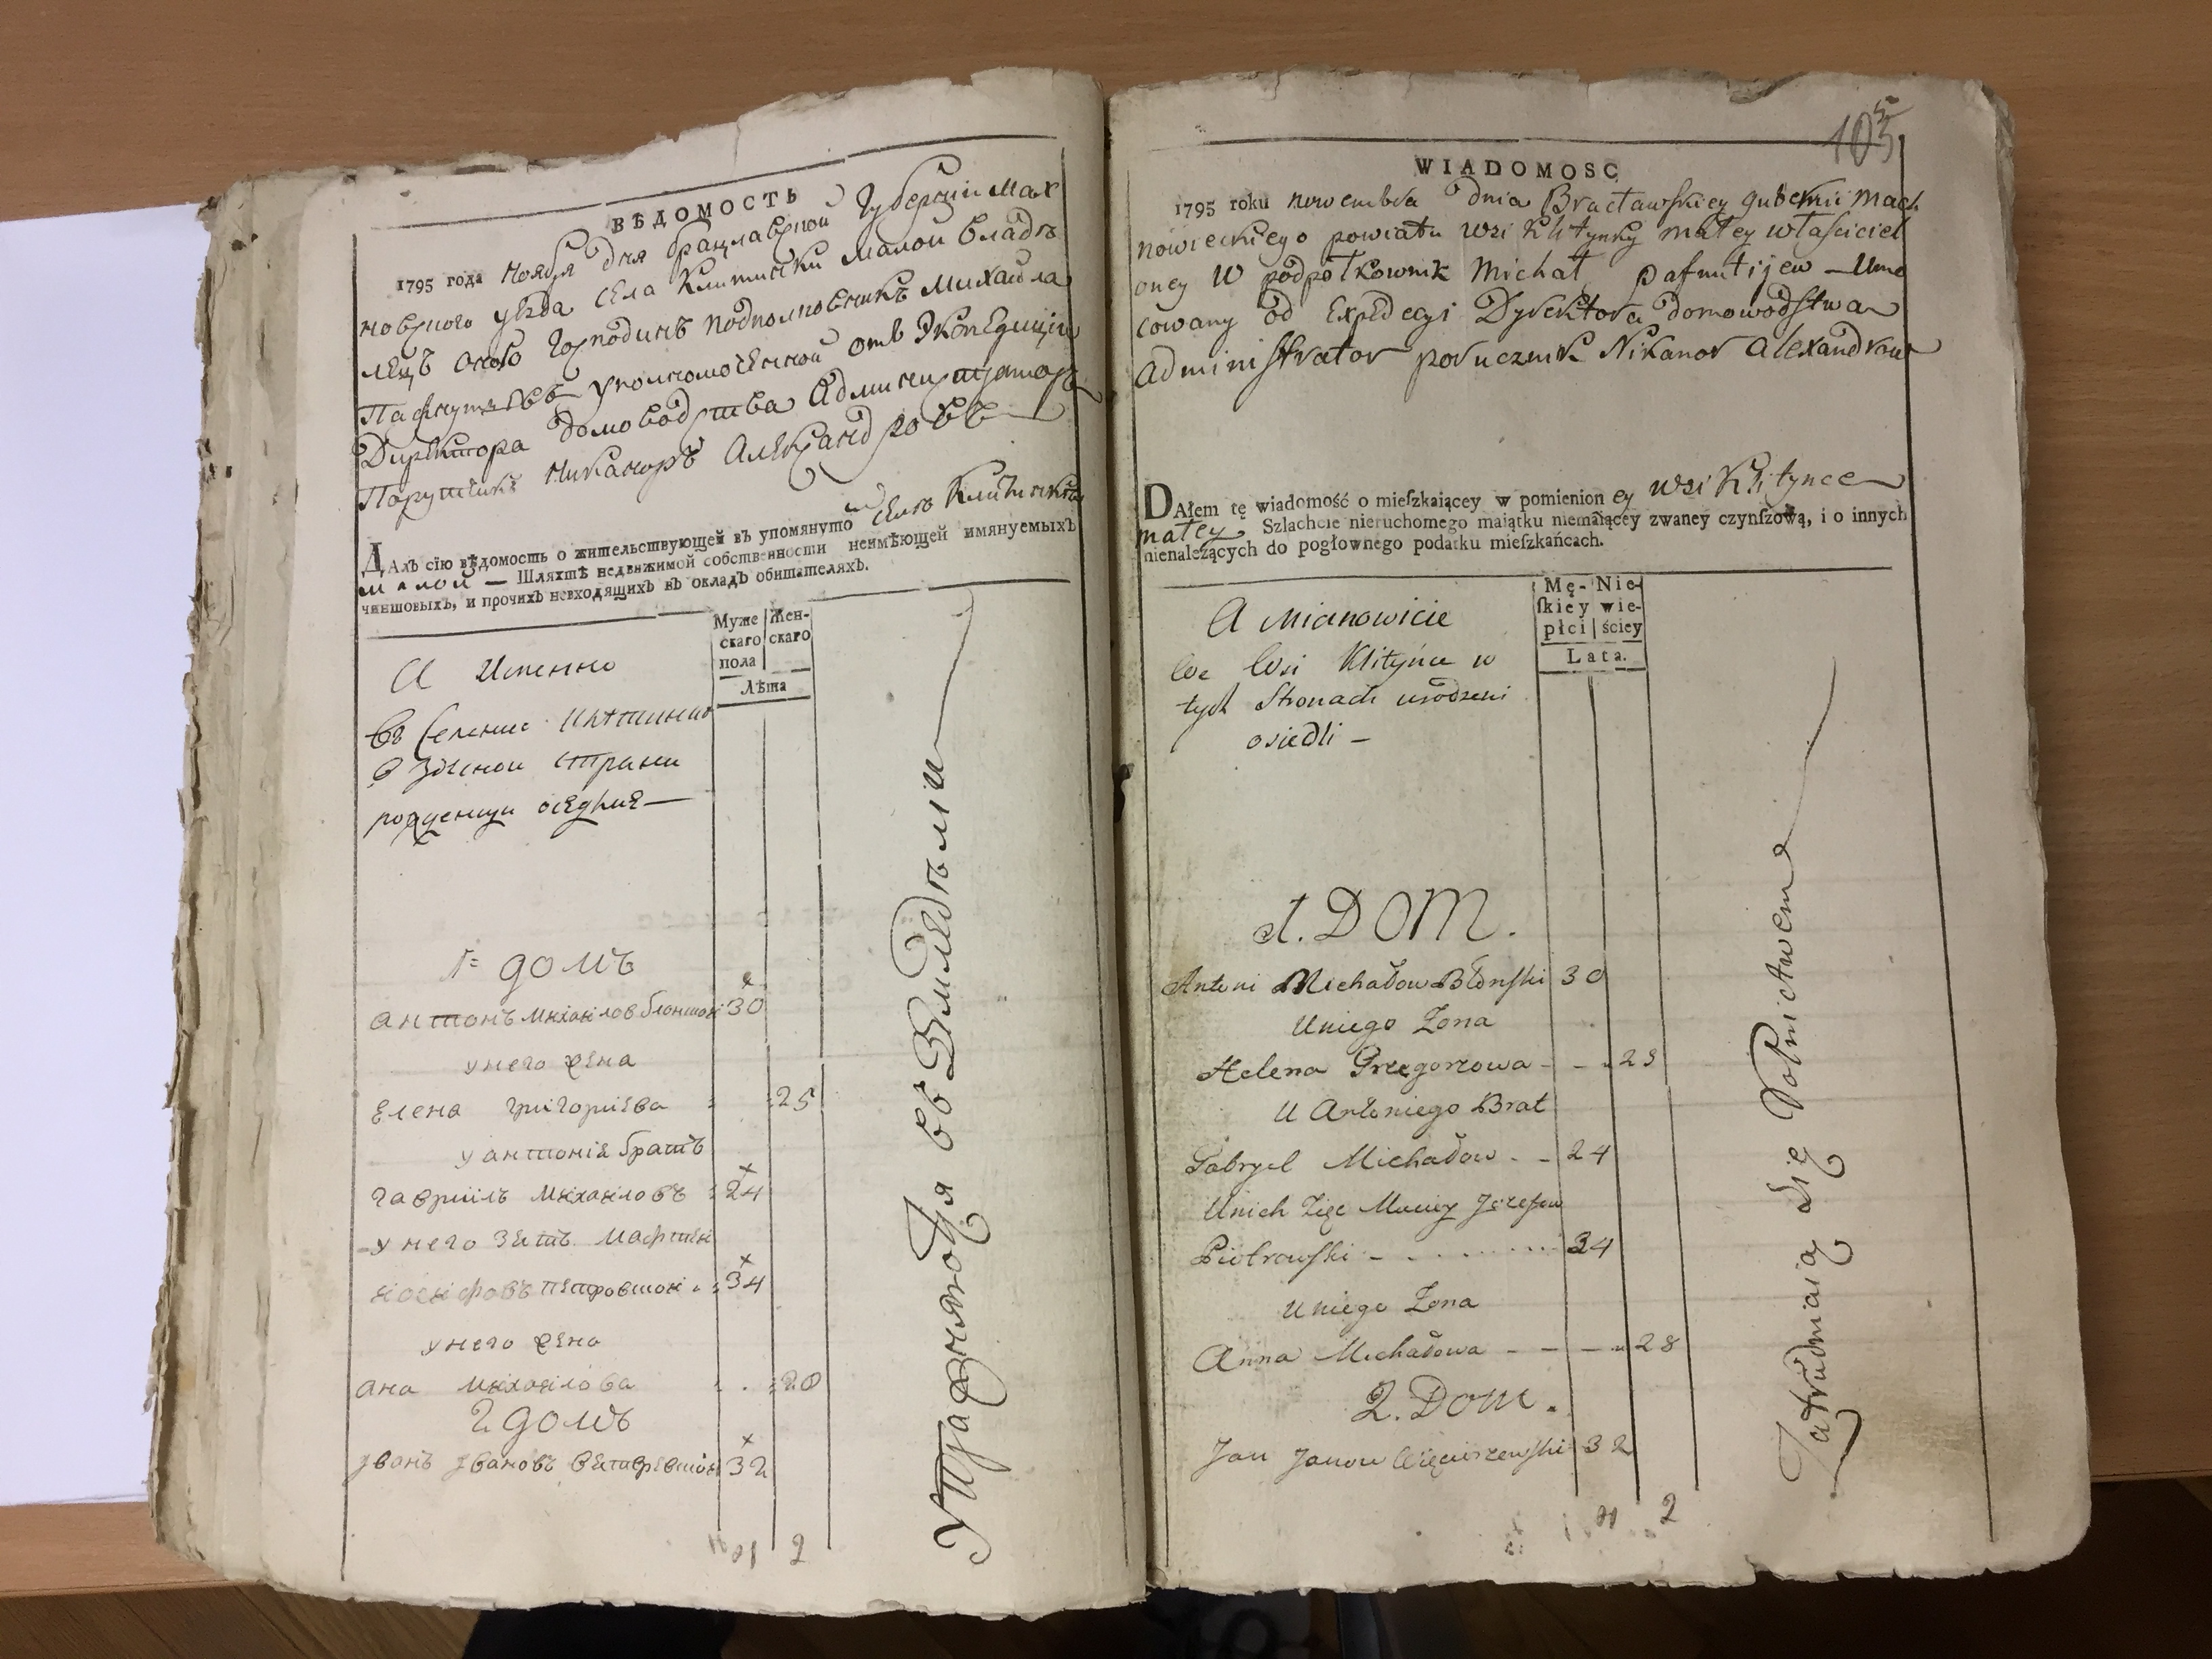 ВѢДОМОСТЬ
1795 года ноября дня брацлавской губернии мах
новского уѣзда села Клитинки малой владѣ
лецъ оного Господинъ подполковникъ михайла
Пафнутьевъ уполномоченной отъ Экспедиции
Директора домоводства администраторъ
Порутчикъ Никаноръ Александровъ
ДАлъ сїю вѣдомость о жительствующей въ упомянуто й селѣ Клитинки
малой — Шляхтѣ недвижимой собственности неимѣющей имянуемыхъ
чиншовыхъ, и прочихъ невходящихъ въ окладъ обитателяхъ.
Муже Жен-
скаго скаго
пола
Лѣта
А Именно
въ селение
в здешной страни
оседлие —
1 = домъ
антонъ михаиловъ блонски 30
у него жена
елена григориева 25
у антонія братъ
гавриилъ михаиловъ 24
у него зять
петровски 34
у него жена
ана михаилова 28
2 домъ
Іванъ Івановъ 32
4 2
Упражняются въ Земледѣлии
105
WIADOMOSC
1795 roku nowembra dnia Bracławskiey gubernii mach
nowieckiego powiatu wsi Klitynky małey własciciel
oney W podpołkownik Michał Pafnutijew — Umo
cowany od Expedecyi Dyrektora domowodstwa
administrator porucznik Nikanor Alexandrow
DAłem tę wiadomość o mieſzkaiącey w pomienion ey wsi Klitynce
małey Szlachcie nieruchomego maiątku niemaiącey zwaney czynſzową, i o innych
nienależących do pogłownego podatku mieſzkańcach.
Mę- Nie-
ſkiey wie-
płci ściey
Lata.
A Mianowicie
we Wsi Klitynce w
tych Stronach urodzeni
osiedli —
1. DOM.
Antoni Michałow Błonſki 30
Uniego Zona
Helena Grzegorzowa - - 25
U Antoniego Brat
Gabryel Michałow - - 24
Unich Zięc Maciey Jozefow
Piotrowſki - 34
Uniego Zona
Anna Michałowa - - - 28
2. Dom.
Jan Janow 32
4 2
Zatrudniaią Się Rolnictwem